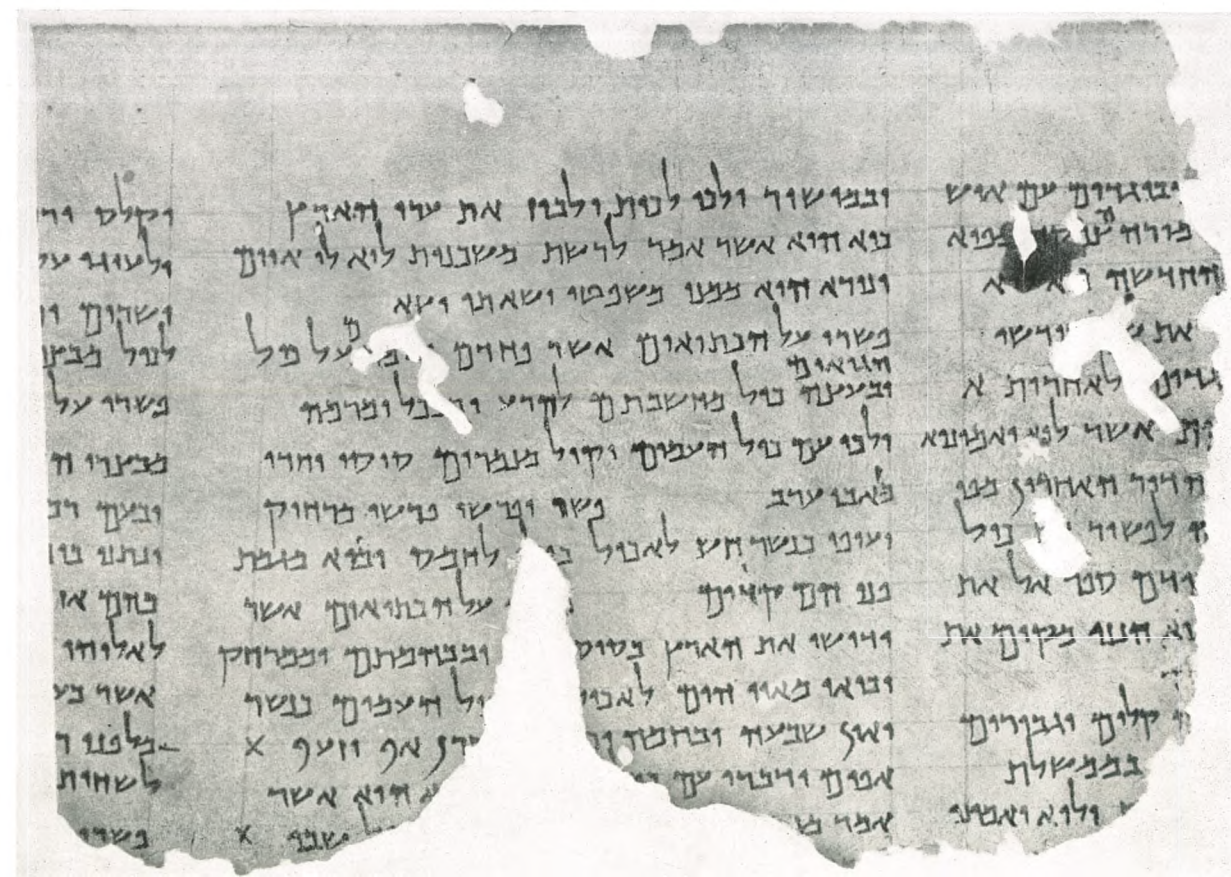 הבוגדים עם איש
מורה הצדקה מפיא
החדשה
את קודשו
לאחרית א
אשר לוא יאמינוא
הדור האחרון מפי
לפשור כול
ספר אל את
הנני מקים את
קלים וגבורים
בממשלת
ולוא יאמינו
ובמישור ילכו לכות ולבוז את ערי הארץ
כיא הוא אשר אמר לרשת משכנות לוא לו איום
ונורא הוא ממנו משפטו ושאתו יצא
פשרו על הכתיאים אשר פחדם על כול
הגואים
ובעצה כול מחשבתם להרע ובנכל ומרמה
ילכו עם כול העמים וקול מנמרים סוסו וחדו
מזאבי ערב פשו ופרשו פרשו מרחוק
יעופו כנשר חש לאכול לחמס יבוא מגמת
פניהם קדים על הכתיאים אשר
ידושו את הארץ בסוס ובבהמתם וממרחק
יבואו מאיי הים לאכו ול העמים כנשר
ואין שבעה ובחמה רן אף וזעף X
אפים ידברו עם א הוא אשר
אמר ול שבי X
וקלס
ילעיגו על
ושרים
לכול מבצר
פשרו על
מבצרי ה
ובעם רב
ונתנו
בהם
לאלוהו
אשר בע
מלפני ר
לשחית
פשרו